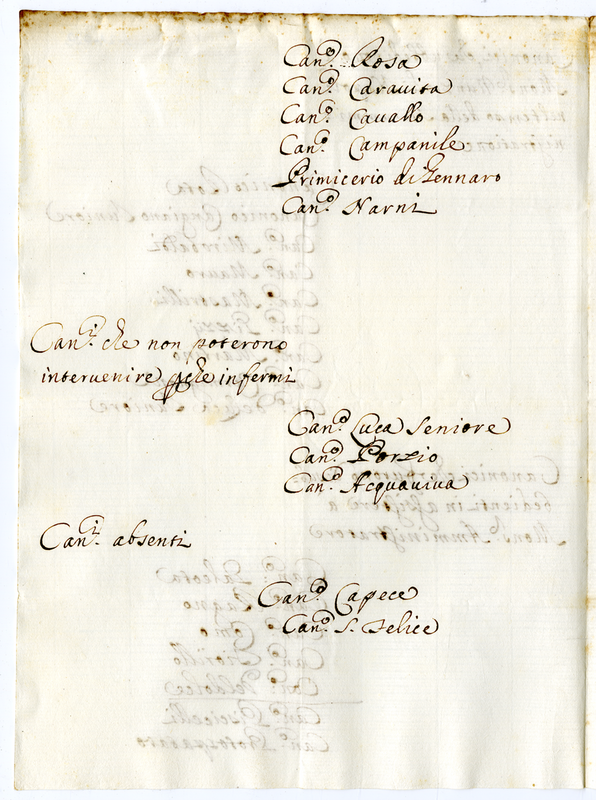 Can.º Rosa
Can.º Caravita
Can.º Cavallo
Can.º Campanile
Primicerio di Gennaro
Can.º Narni
Can.ⁱ che non poterono
intervenire p̱che infermi
Can.º Luca Seniore
Can.º Porzio
Can.º Acquaviva
Can.ⁱ absenti
Can.º Capece
Can.º S. Felice